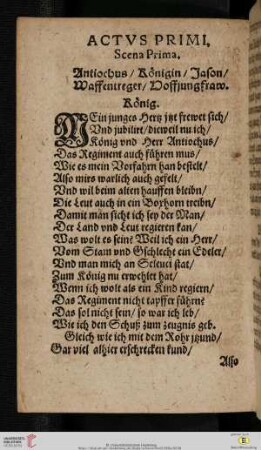 ACTVS PRIMI,
Scena Prima.
Antiochus / Königin / Jason /
Waffentreger / Hoffjungfraw.
König.
MEin junges Hertz jtzt frewet sich /
Vnd jubilirt / dieweil nu ich /
König vnd Herr Antiochus /
Das Regiment auch führen mus /
Wie es mein Vorfahrn han bestelt /
Also mirs warlich auch gefelt /
Vnd wil beim alten hauffen bleibn /
Die Leut auch in ein Boxhorn treibn /
Damit man sicht ich sey der Man /
Der Land vnd Leut regieren kan /
Was wolt es sein? Weil ich ein Herr /
Vom Stam vnd Gschlecht ein Edeler /
Vnd man mich an Seleuci stat /
Zum König nu erwehlet hat /
Wenn ich wolt als ein Kind regiern /
Das Regiment nicht tapffer führn?
Das sol nicht sein / so war ich leb /
Wie ich den Schuß zum zeugnis geb.
Gleich wie ich mit dem Rohr jtzund /
Gar viel alhier erschrecken kund /
Also